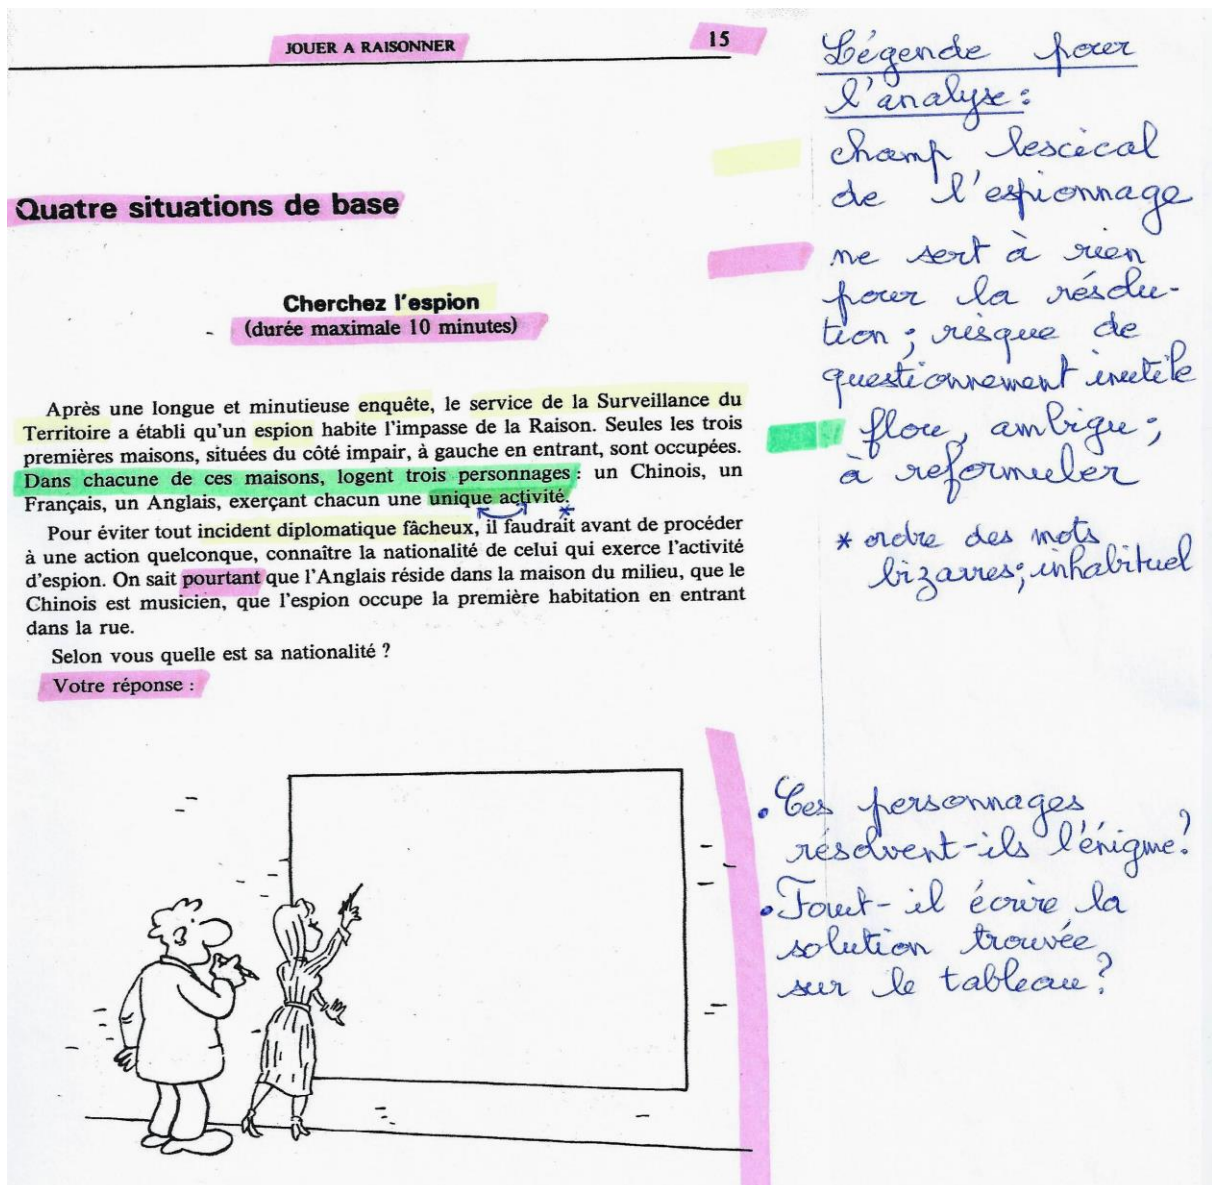 JOUER A RAISONNER
15
Quatre situations de base
Cherchez l'espion
(durée maximale 10 minutes)
Après une longue et minutieuse enquête, le service de la Surveillance du
Territoire a établi qu'un espion habite l'impasse de la Raison. Seules les trois
premières maisons, situées du côté impair, à gauche en entrant, sont occupées.
Dans chacune de ces maisons, logent trois personnages : un Chinois, un
Français, un Anglais, exerçant chacun une unique activité.
*
Pour éviter tout incident diplomatique fâcheux, il faudrait avant de procéder
à une action quelconque, connaître la nationalité de celui qui exerce l'activité
d'espion. On sait pourtant que l'Anglais réside dans la maison du milieu, que le
Chinois est musicien, que l'espion occupe la première habitation en entrant
dans la rue.
Selon vous quelle est sa nationalité ?
Votre réponse :
Légende pour
l'analyse :
champ lescical
de l'espionnage
ne sert à rien
pour la résolu-
tion ; risque de
questionnement inutile
flou, ambigu ;
à reformuler
* ordre des mots
bizarres ; inhabituel
• Ces personnages
résolvent-ils l'énigme ?
• Faut-il écrire la
solution trouvée
sur le tableau ?